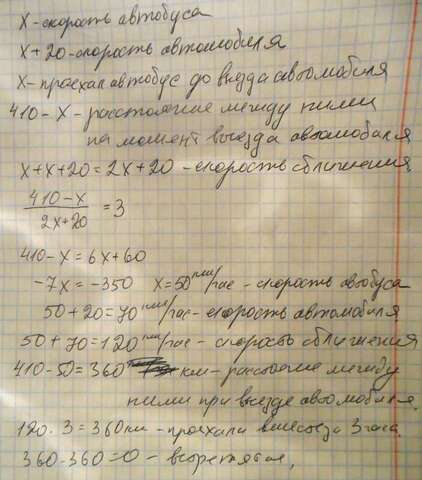 x - скорость автобуса
x + 20 - скорость автомобиля
x - проехал автобус до выезда автомобиля
410 - x - расстояние между ними
на момент выезда автомобиля
x + x + 20 = 2x + 20 - скорость сближения
410 - x / 2x + 20 = 3
410 - x = 6x + 60
-7x = -350 x = 50 км/час - скорость автобуса
50 + 20 = 70 км/час - скорость автомобиля
50 + 70 = 120 км/час - скорость сближения
410 - 50 = 360 км - расстояние между
ними при выезде автомобиля.
120 · 3 = 360 км - проехали вместе за 3 часа
360 - 360 = 0 - встретятся.